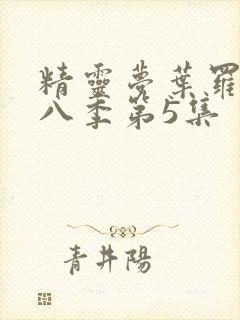 精靈夢葉羅
八季第5集
青井陽